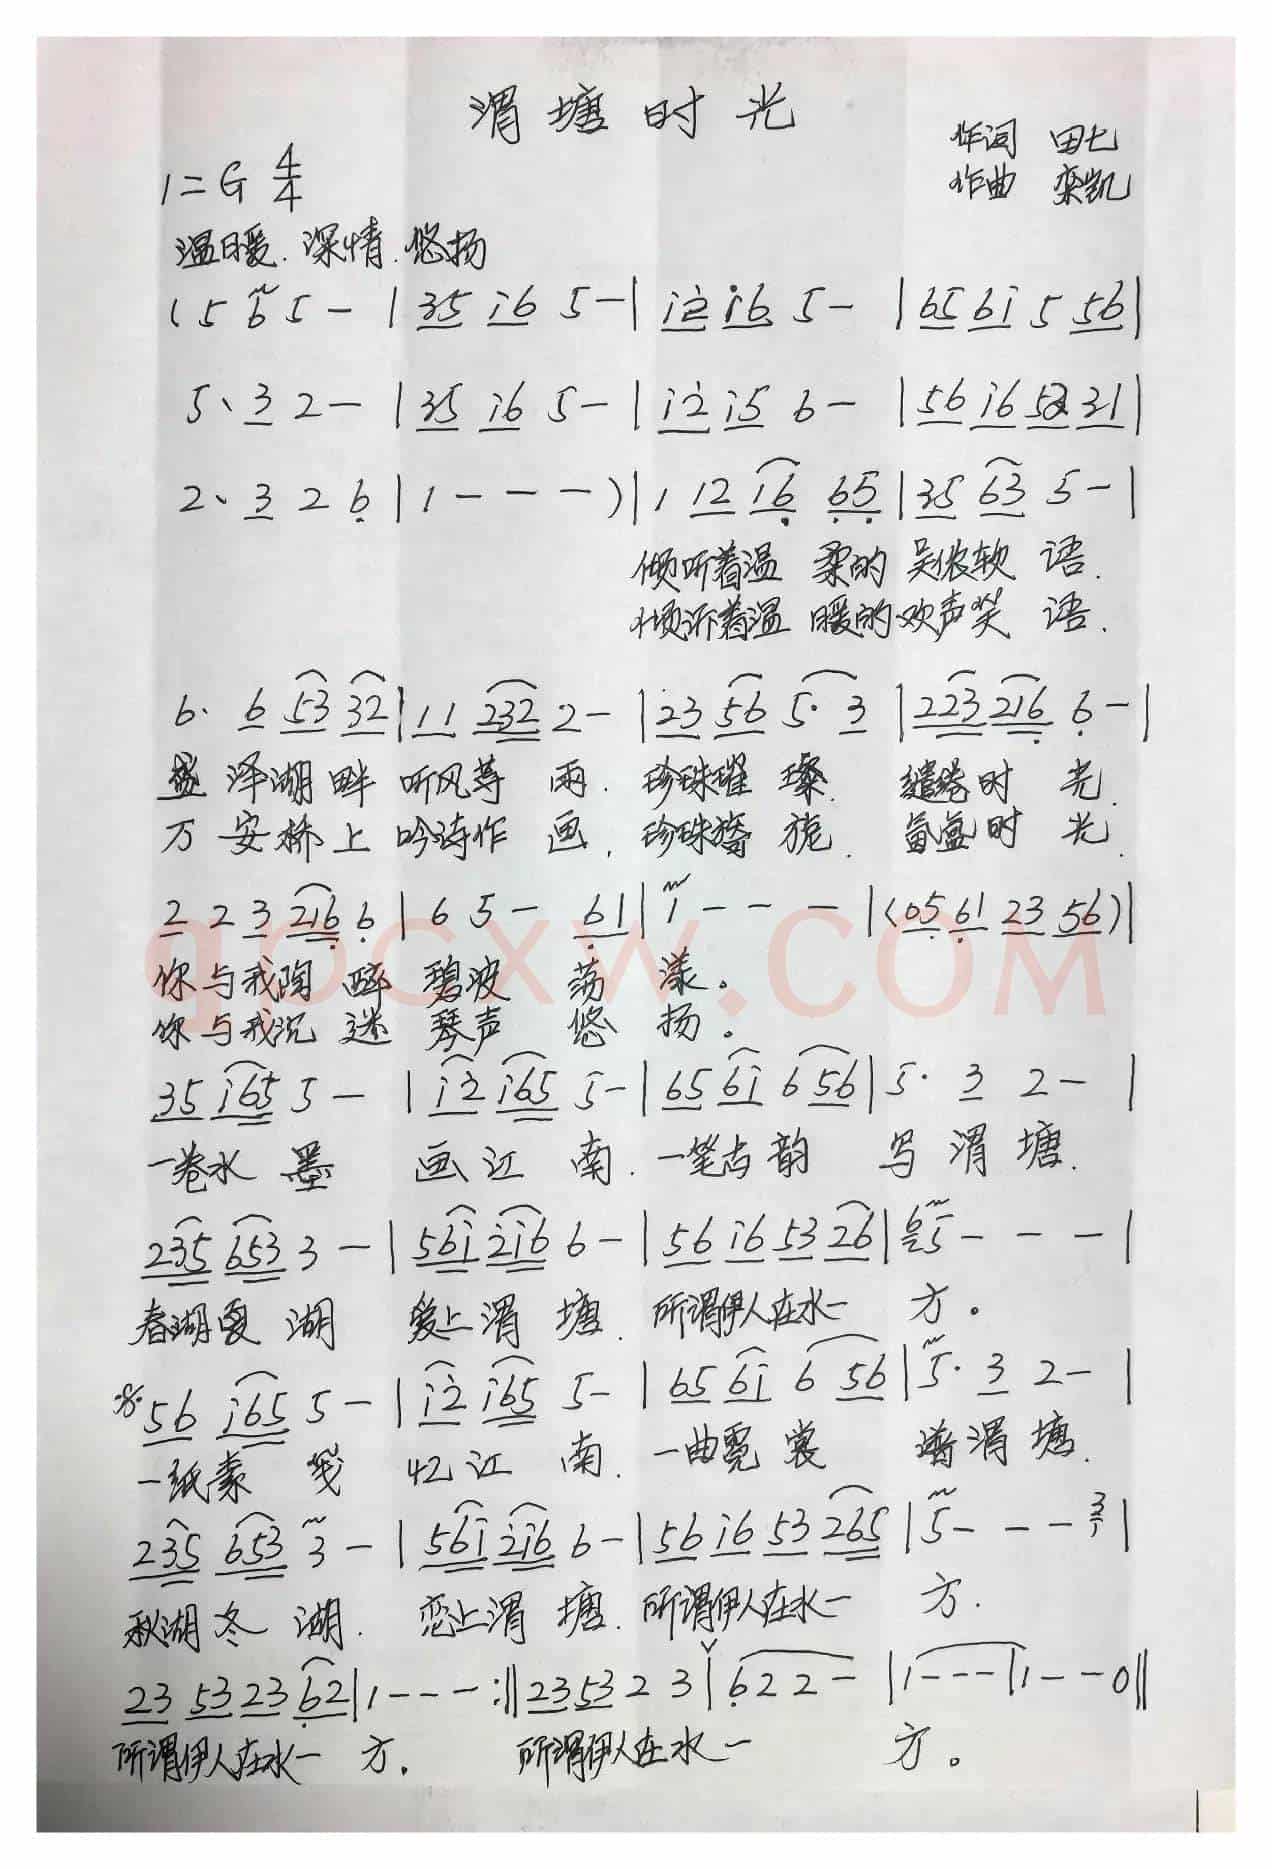 渭塘时光
作词 田七
1=G 4/4
作曲 栾凯
温暖.深情.悠扬
(5 6 5 - | 35 i6 5 - | i2 i6 5 - | 65 6i 5 56 |
5、3 2 - | 35 i6 5 - | i2 i5 6 - | 56 i6 53 31 |
2、3 2 6 | 1 - - - ) | 1 12 16 65 | 35 63 5 - |
倾听着温 柔的 吴侬软 语.
倾诉着温 暖的欢声笑 语.
6. 6 53 32 | 11 232 2 - | 23 56 5. 3 | 223 216 6 - |
盛 泽湖畔 听风等 雨. 珍珠璀 璨. 缱绻时 光.
万 安桥上 吟诗作 画. 珍珠旖 旎. 氤氲时 光.
2 2 3 216 6 | 6 5 - 61 | 1 - - - | (05 61 23 56) |
你与我陶 醉 碧波 荡 漾。
你与我沉 迷 琴声 悠 扬。
35 i65 5 - | i2 i65 5 - | 65 6i 6 56 | 5. 3 2 - |
一卷水 墨 画江 南. 一笔古韵 写渭塘.
235 653 3 - | 56i 2i6 6 - | 56 i6 53 26 | 6 5 - - - |
春湖夏 湖 爱上渭 塘. 所谓伊人在水一 方。
56 i65 5 - | i2 i65 5 - | 65 6i 6 56 | 5. 3 2 - |
一纸素 笺 忆江 南. 一曲霓裳 谱渭塘.
235 653 3 - | 56i 2i6 6 - | 56 i6 53 265 | 5 - - - |
秋湖冬 湖. 恋上渭 塘. 所谓伊人在水一 方.
23 53 23 62 | 1 - - - :|| 23 53 2 3 | 6 2 2 - | 1 - - - | 1 - - 0 ||
所谓伊人在水一 方. 所谓伊人在水一 方。
qpcxw.COM